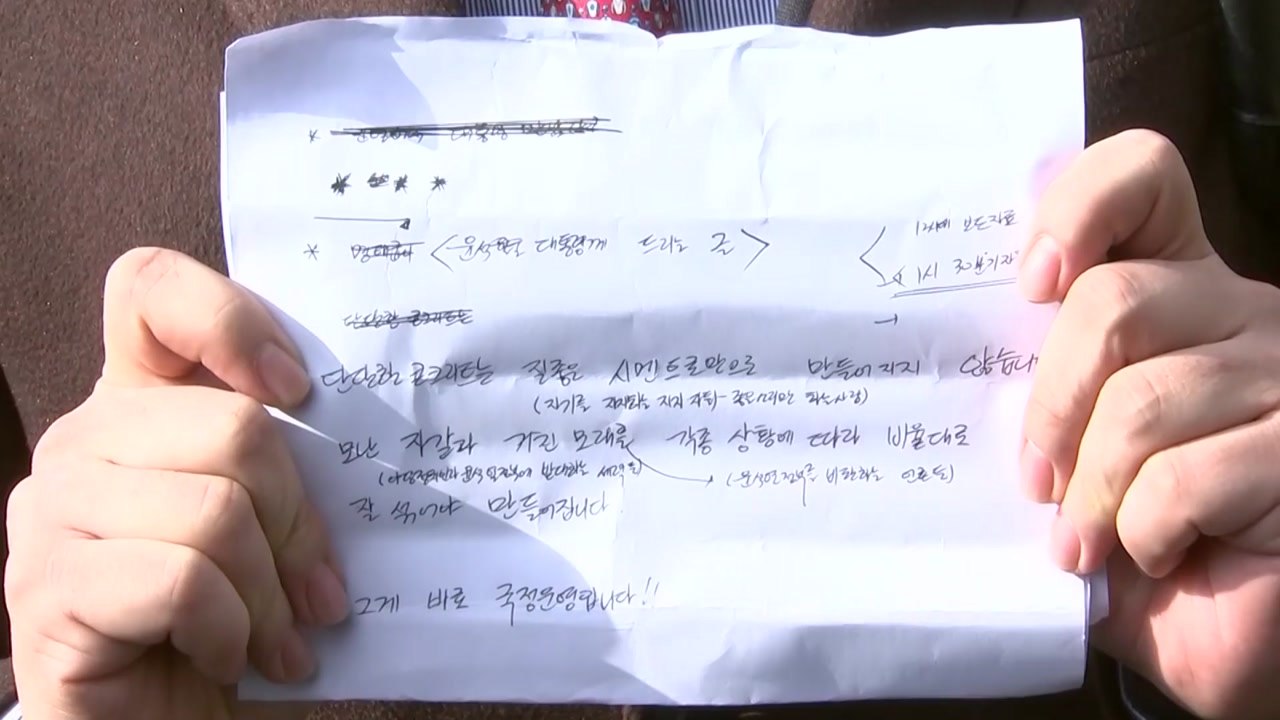 <윤석열 대통령께 드리는 글>
12시에 보도자료
1시 30분 기자
단단한 콘크리트는
단단한 콘크리트는 질좋은 시멘트로만으로 만들어지지 않습니
(자기를 지지하는 지지자들- 좋은소리만 하는사람)
모난 자갈과 거친 모래를 각종 상황에 따라 비율대로
(야당정치인과 윤석열정부에 반대하는 세력들) (윤석열정부를 비판하는 언론들)
잘 섞어야 만들어집니다.
그게 바로 국정운영입니다!!